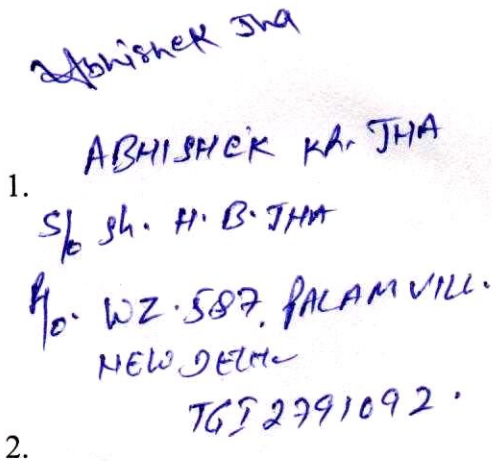 Abhishek Jha
ABHISHEK Kr. JHA
1.
S/o Sh. H. B. JHA
R/o. WZ. 587, PALAM VILL.
NEW DELHI
TGI2791092.
2.